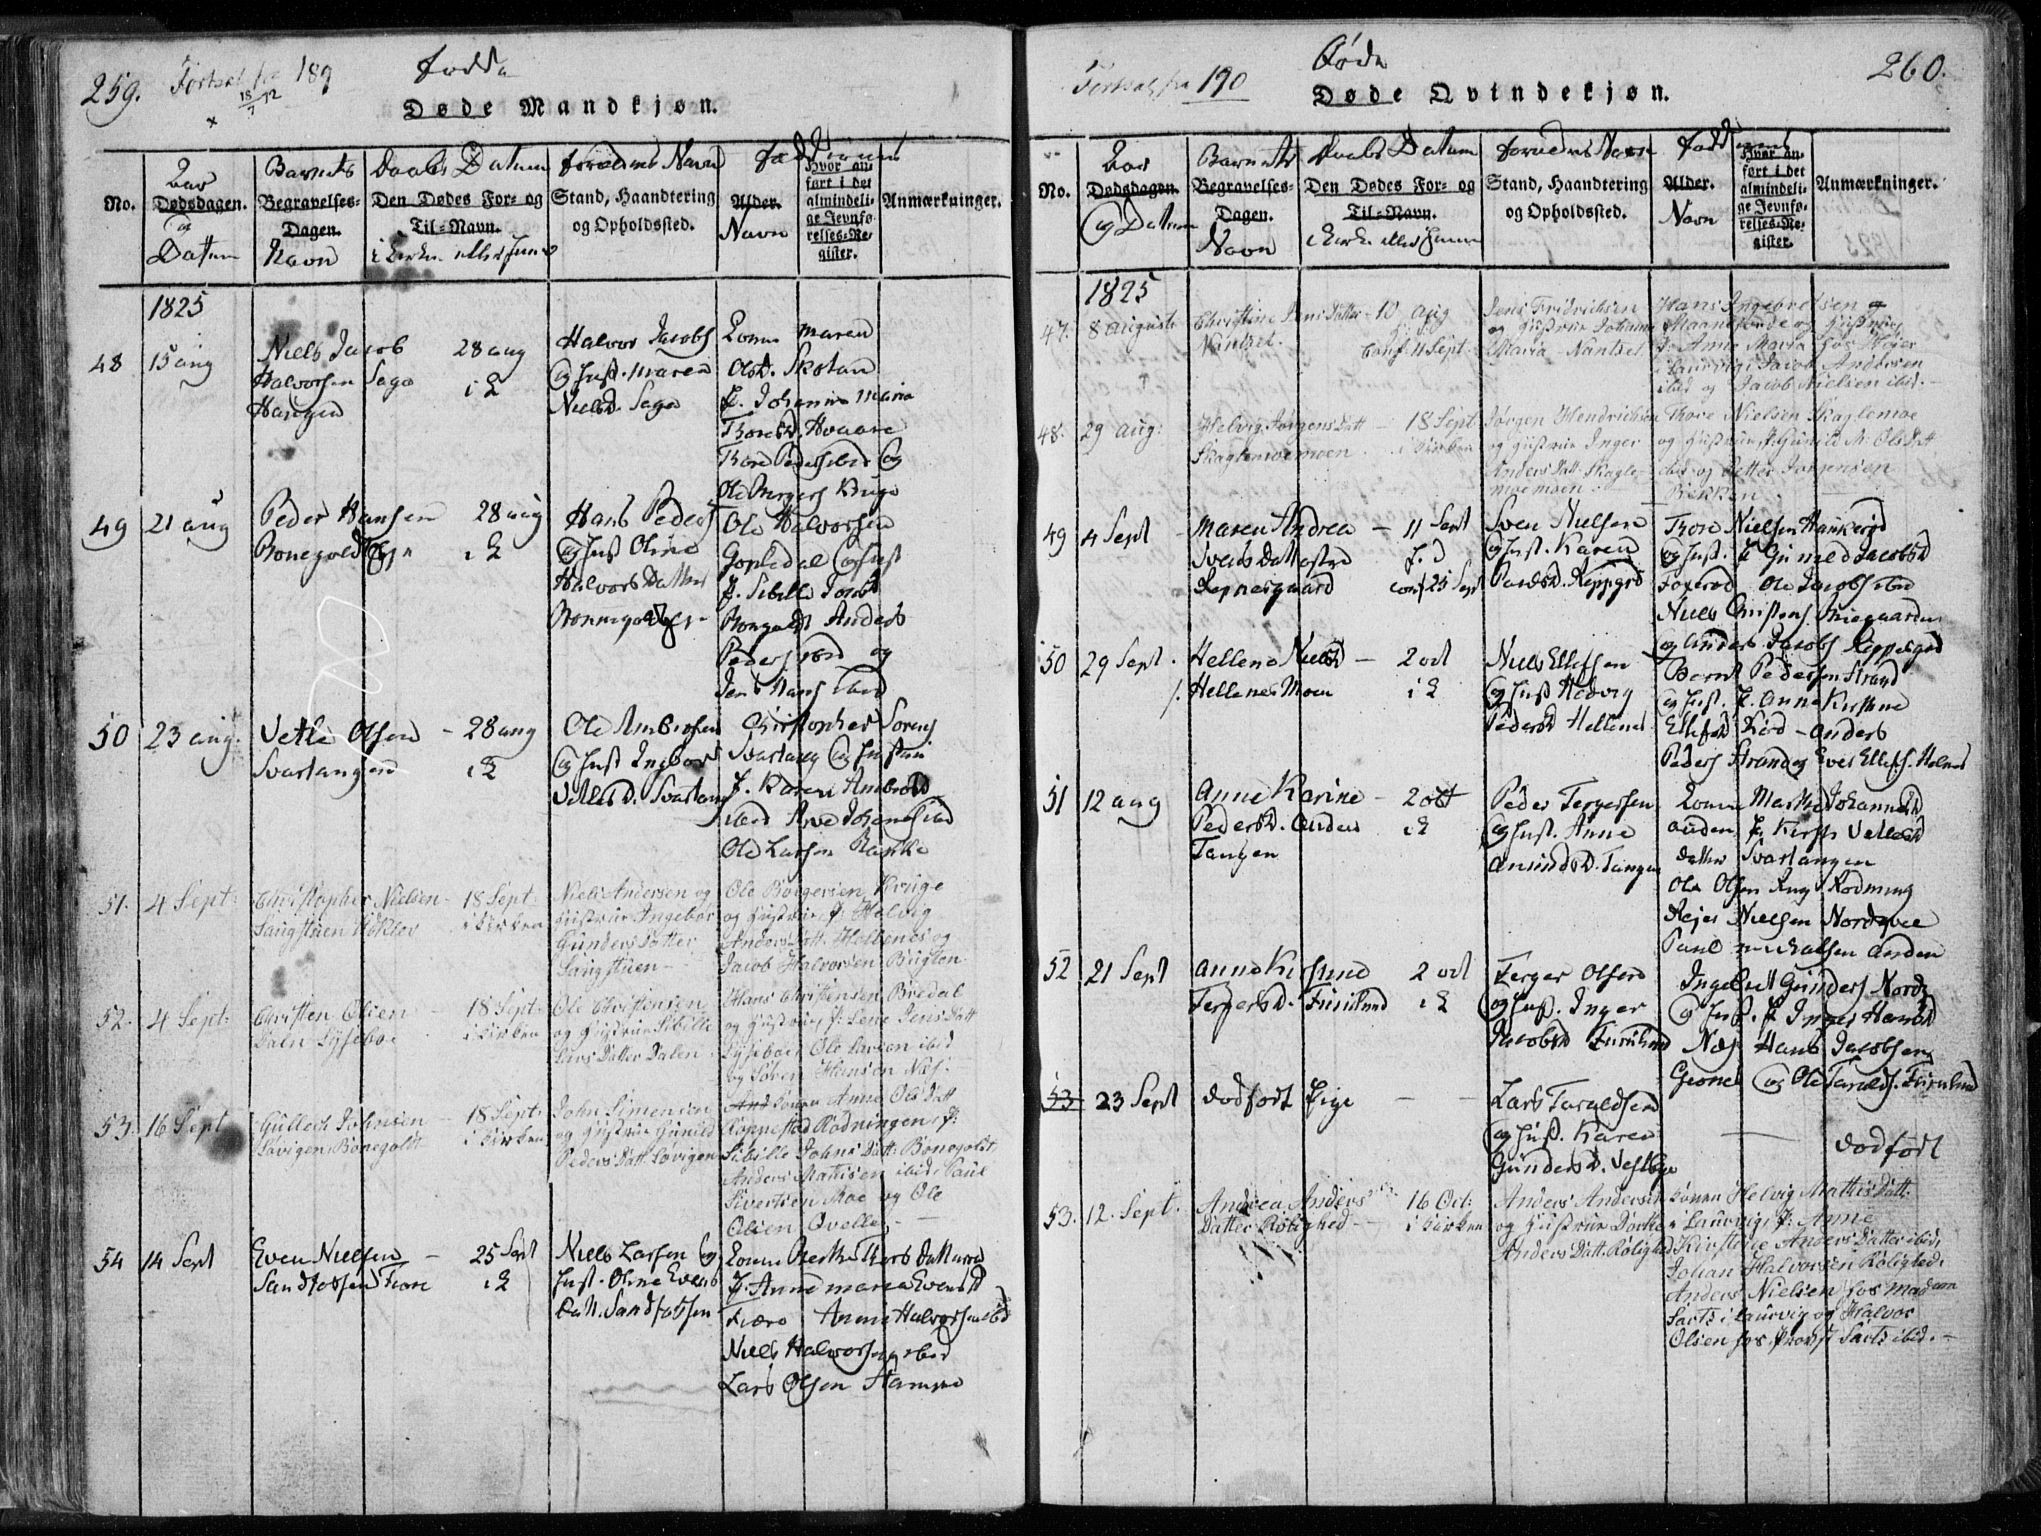 259. Fortsat fra 189
18/7 72
Fødde
Døde Mandkjøn.
No.
Aar
Dødsdagen.
og
Datum
Barnets
Begravelses-
Dagen.
Navn
Daabs Datum
Den Dødes For- og
Til-Navn.
i Kirken eller hjemme
Forældrenes Navn
Stand, Haandtering
og Opholdssted.
Faddernes
Alder.
Navn
Hvor an-
ført i det
almindeli-
ge Jevnfø-
relses-Re-
gister.
Anmærkninger.
1825
48 15 aug
Niels Jacob
Halvorsen Saga
Haugen
28 aug
i K
Halvor Jacobs
og Hust. Maren
Nielsd. Saga
Konen Maren
Olsd. Skotan
P. Johanne Maria
Thoresd. Hvaara
Thore Peders ibid og
Ole Borgers Kruge
49 21 aug
Peder Hansen
Bonegoldt
28 aug
i K
Hans Peders
og Hust Oline
Halvors Datter
Ole Halvorsen
Gopledal og Hust
P. Sibille
Bonegoldt Anders
Peders ibid og
Jens Hans ibid
50 23 aug.
Vetle Olsen
Svartangen
– 28 aug
i K
Ole Ambrosen
og Hust Ingbor
Vetlesd. Svartang
Christopher Sørens
Svartang og Hustru
P. Karen Ambrosd
ibid Arve Johans ibid
Ole Larsen
51. 4 Sept:
Christopher Nielsen
Langstuen
18 Sept:
i Kirken
Niels Andersen og
Hustrue Ingebor
Gunders Datter
Langstuen –
Ole Borgersen Kruge
og Hustrue, P: Helvig
Anders Datt. Holtenes og
Jacob Halvorsen
52. 4 Sept:
Christen Olsen
Dalen Lysebo.
18 Sept:
i Kirken
Ole Christensen
og Hustrue Sibille
Lars Datter Dalen
Hans Christensen Bredal
og Hustrue, P: Lene Jens Datt
Lyseboe, Ole Larsen ibid
og Søren Hansen Næs.
53. 16 Sept
Gullech Johnsen
Løvigen Bonegoldt
18 Sept:
i Kirken
John Simensen
og Hustrue Gunild
Peders Datt Løvigen
Konen Anne Ols Datt
Roppestad Rødningen, P:
Sibille Johns Datt: Bonegoldt,
Anders Mathisen ibid, Paul
Sivertsen Moe og Ole
Olsen Qvelle. –
54 14 Sept
Even Nielsen
Sandfossen
– 25 Sept
i K
Niels Larsen og
Hust. Oline Evens
Datt. Sandfossen
Konen Berthe Thors Datter
P. Anne Maria Evensd
Anne Halvorsen ibid
Niels Halvorsen ibid
Lars Olsen
Fortsat fra 190
Fødde
260.
Døde Qvindekjøn.
No.
Aar
Dødsdagen.
og Datum
Barnets
Begravelses-
Dagen.
Navn
Daabs Datum
Den Dødes For- og
Til-Navn.
i Kirken eller hjemme
Forældrenes Navn
Stand, Haandtering
og Opholdssted.
Faddernes
Alder.
Navn
Hvor an-
ført i det
almindeli-
ge Jevnfø-
relses-Re-
gister.
Anmærkninger.
1825
47. 8 august
Christine Jens Datter
Nantzet.
10 aug
Conf. 11 Sept.
Jens Fridrichsen
og Hustrue Johanne
Maria Nantzet.
Hans Ingebretsen
og Hustrue
P: Anne Maria hos Meier
i Laurvig, Jacob Andersen
ibid og Jacob Nielsen ibid. –
48. 29 aug:
Helvig Jørgens Datt –
Skaglemoemoen.
18 Sept
i Kirken
Jørgen Hendrichsen
og Hustrue Inger
Anders Datt. Skagle-
moemoen. –
Thore Nielsen Skaglemoe
og Hustrue, P: Gunild M: Ols Datt
ibid og Petter Jørgensen
Bekken.
49 4 Sept
Maren Andrea –
Svens Datt østre
Røpnesgaard
11 Sept
conf 25 Sept
Sven Nielsen
og Hust. Karen
Thore Nielsen Haukerød
og Hust. P Guneld Jacobsd
Foxerød Ole Jacobs ibid
Niels Christens
og Anders Jacobs
50 29 Sept.
Hellene Nielsd –
Hellenes Moen
2 oct
i K
Niels Ellefsen
og Hust Hedvig
Pedersd Hellenes
Bernt Pedersen Strand
og Hust. P. Anne Kirstine
Ellefsd – Anders
Peders Strand og Even Ellefs. Holmen
51 12 aug
Anne Karine –
Pedersd. Anden
Tangen
2 oct
i K
Peder Tergersen
og Hust. Anne
Amundsd. Tangen
Konen Marthe Johannesd
anden P. Kirsti Vetles
datter Svartangen
Ole Olsen Rødning
Rejer Nielsen Nordqvel
Paul Michalsen anden
52 21 Sept
Anne Kirstine
Tergersd. Furulund
2 oct
i K
Terger Olsen
og Hust. Inger
Jacobsd Furulund
Ingebret Gunders
og Hust. P Inger Hansd
Næs Hans Jacobsen
og Ole Taralds. Furulund
53 23 Sept
dødfødt Pige – –
Lars Taraldsen
og Hust. Karen
Gundersd. Vestbye
dødfødt
53. 12. Sept.
Andrea Anders
Datter Rolighed –
16 Oct:
i Kirken
Anders Andersen
og Hustrue Dorthe
Anders Datt. Rolighed
Konen Helvig Mathis Datt:
i Laurvig, P: Anne
Kirstine Anders Datter ibid,
Johan Halvorsen Rolighed,
Anders Nielsen hos Madam
Sartz i Laurvig og Halvor
Olsen hos Provst Sartz ibid. –